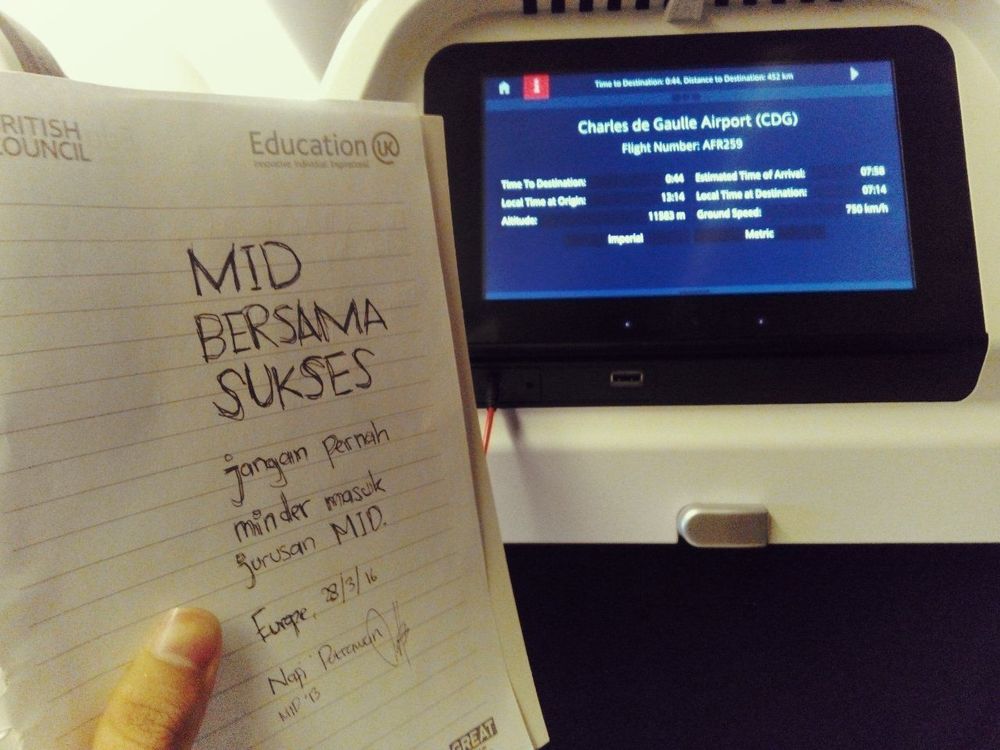 RITISH
OUNCIL
Education UK
Innovative Individual Inspirational
MID
BERSAMA
SUKSES
jangan pernah
minder masuk
jurusan MID.
Europe, 28/3/16
MID '13
GREAT
Time to Destination: 0:44, Distance to Destination: 452 km
Charles de Gaulle Airport (CDG)
Flight Number: AFR259
Time To Destination: 0:44 Estimated Time of Arrival: 07:58
Local Time at Origin: 13:14 Local Time at Destination: 07:14
Altitude: 11583 m Ground Speed: 750 km/h
Imperial Metric